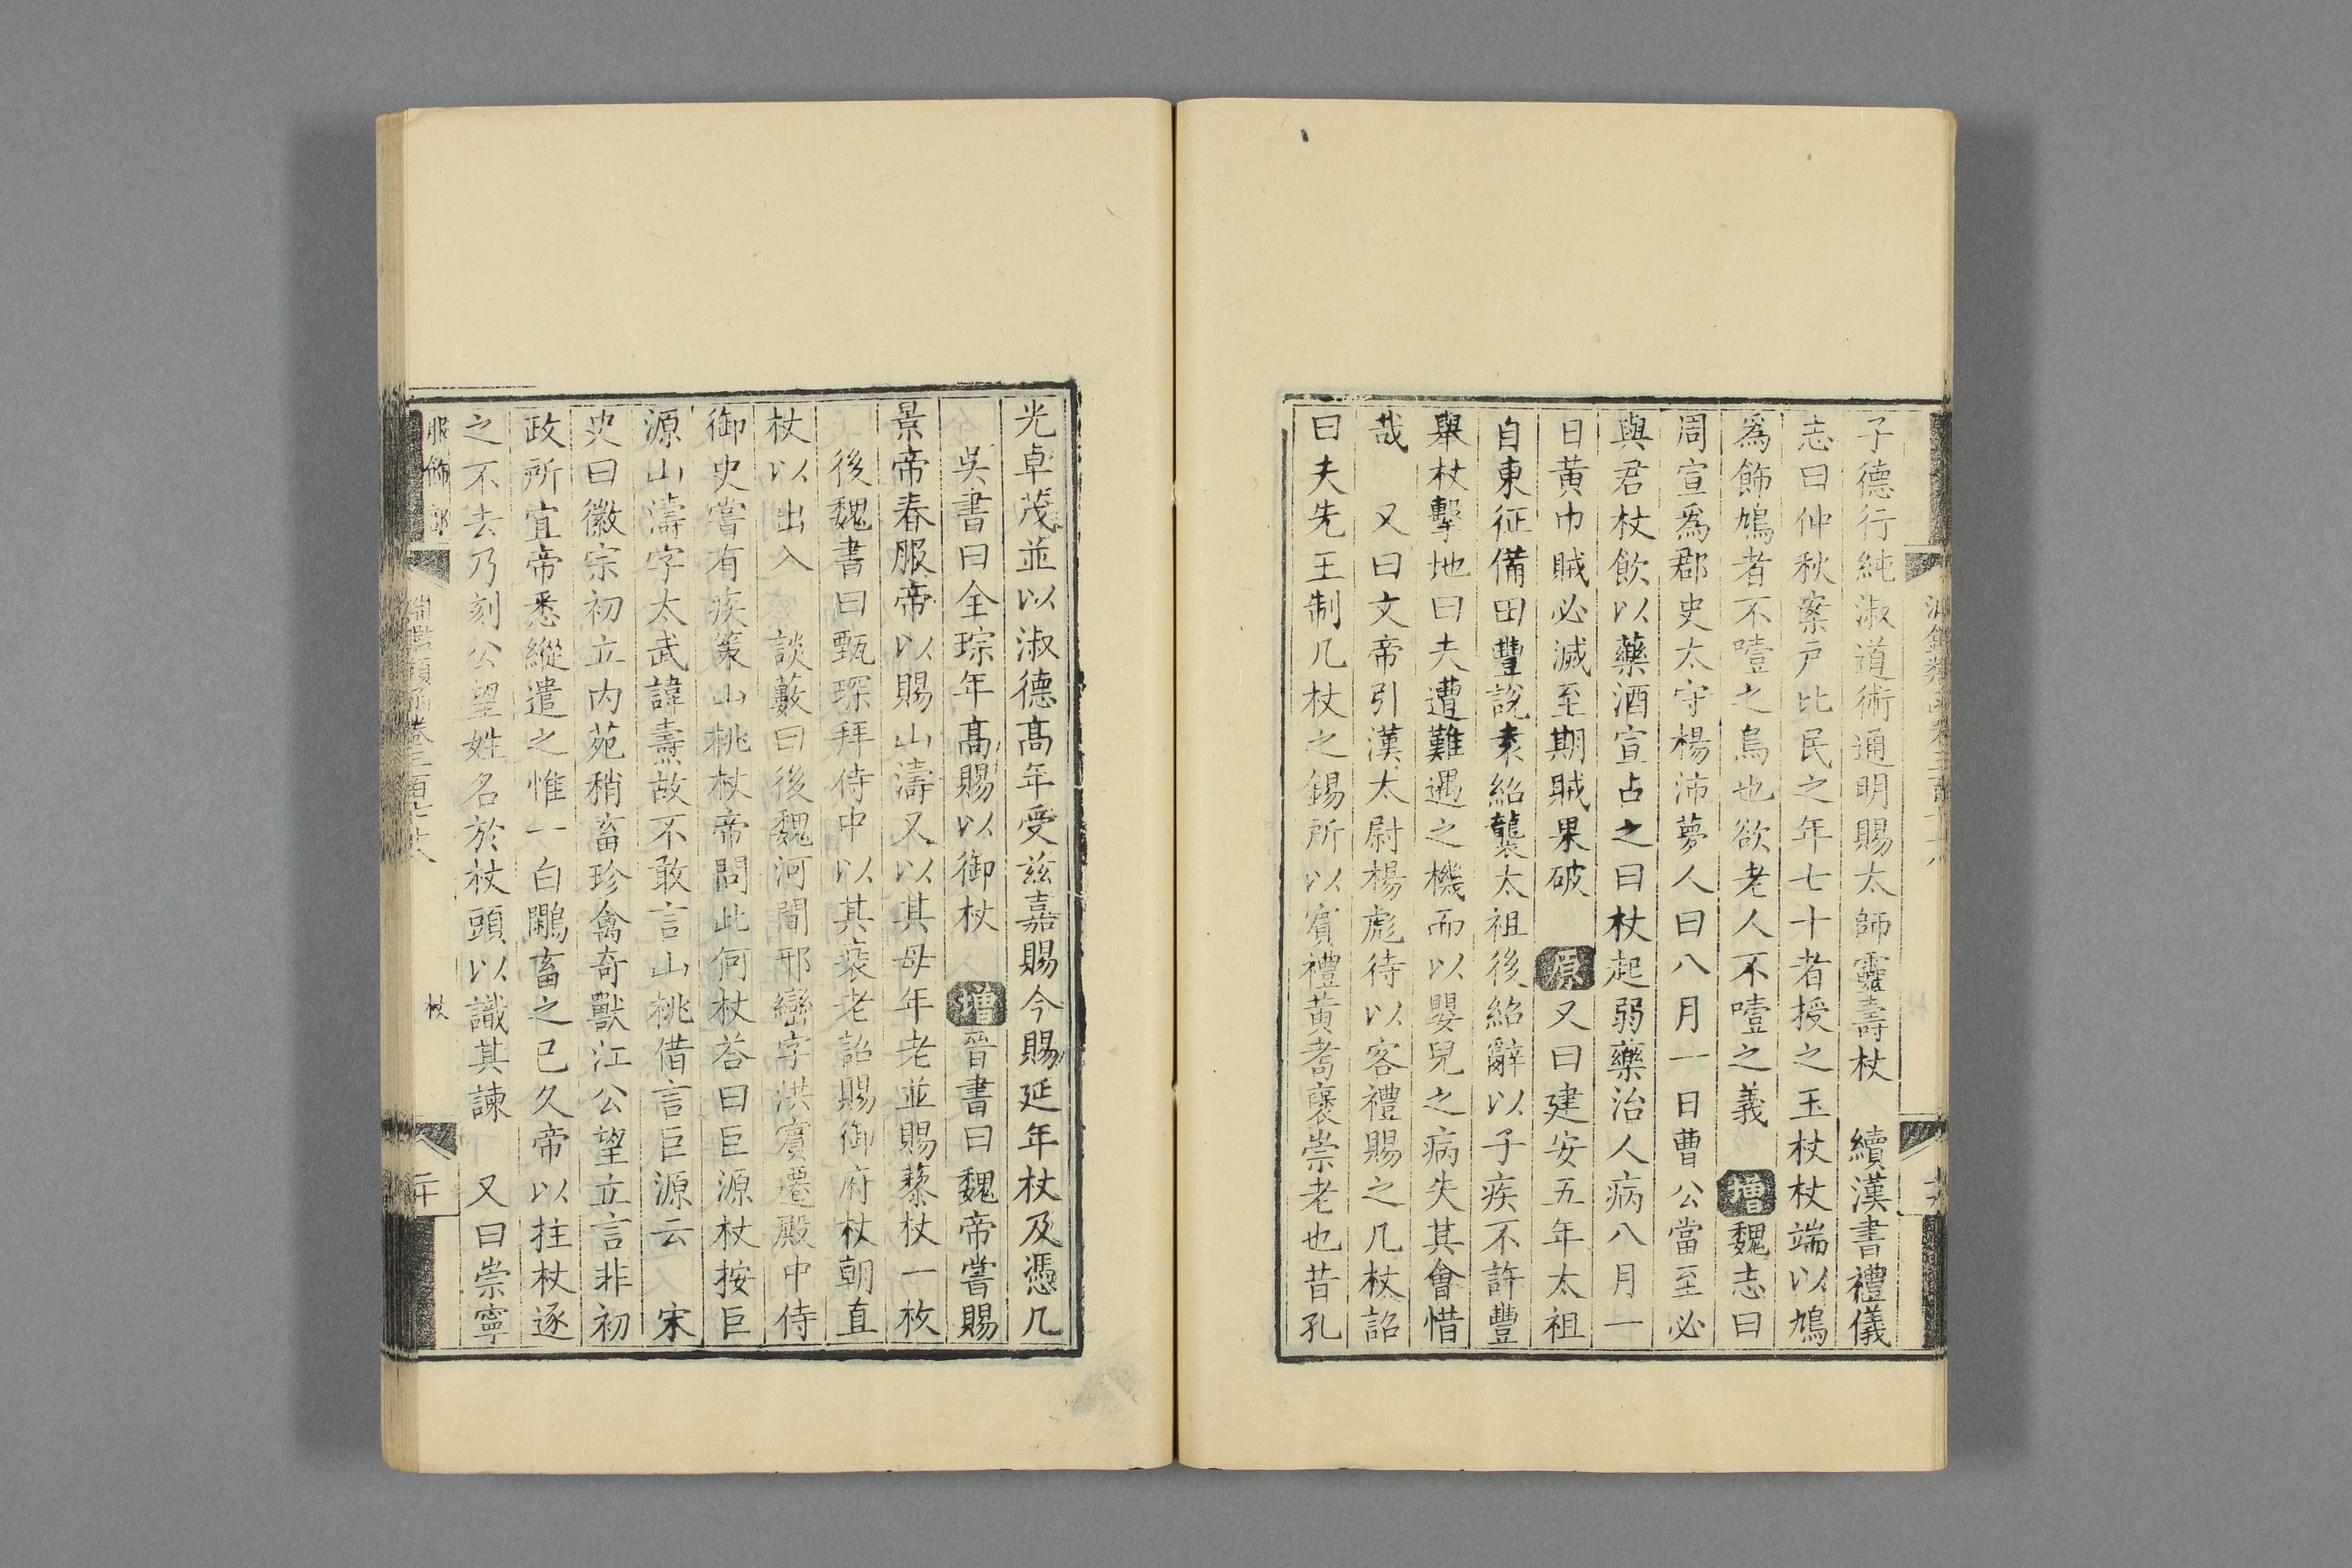 子德行純淑道術通明賜太師靈壽杖　續漢書禮儀
志曰仲秋案戸比民之年七十者授之玉杖杖端以鳩
爲飾鳩者不噎之鳥也欲老人不噎之義　增魏志曰
周宣爲郡史太守楊沛夢人曰八月一日曹公當至必
與君杖飲以藥酒宣占之曰杖起弱藥治人病八月一
日黃巾賊必滅至期賊果破　原又曰建安五年太祖
自東征備田豐說袁紹襲太祖後紹辭以子疾不許豐
舉杖擊地曰夫遭難遇之機而以嬰兒之病失其會惜
哉　又曰文帝引漢太尉楊彪待以客禮賜之几杖詔
曰夫先王制几杖之錫所以賓禮黃耇褒崇老也昔孔
光卓茂並以淑德高年受兹嘉賜今賜延年杖及憑几
吳書曰全琮年高賜以御杖　增晉書曰魏帝嘗賜
景帝春服帝以賜山濤又以其母年老並賜藜杖一枚
後魏書曰甄琛拜侍中以其衰老詔賜御府杖朝直
杖以出入　談藪曰後魏河間邢巒字洪賓遷殿中侍
御史嘗有疾策山桃杖帝問此何杖荅曰巨源杖按巨
源山濤字太武諱燾故不敢言山桃借言巨源云　宋
史曰徽宗初立内苑稍畜珍禽奇獸江公望立言非初
政所宜帝悉縱遣之惟一白鷳畜之已久帝以拄杖逐
之不去乃刻公望姓名於杖頭以識其諫　又曰崇寧
服飾部
杖